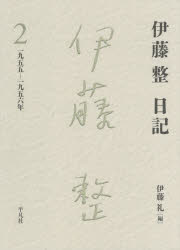 伊藤整 日記
2
一九五五―一九五六年
伊藤整
伊藤礼[編]
平凡社